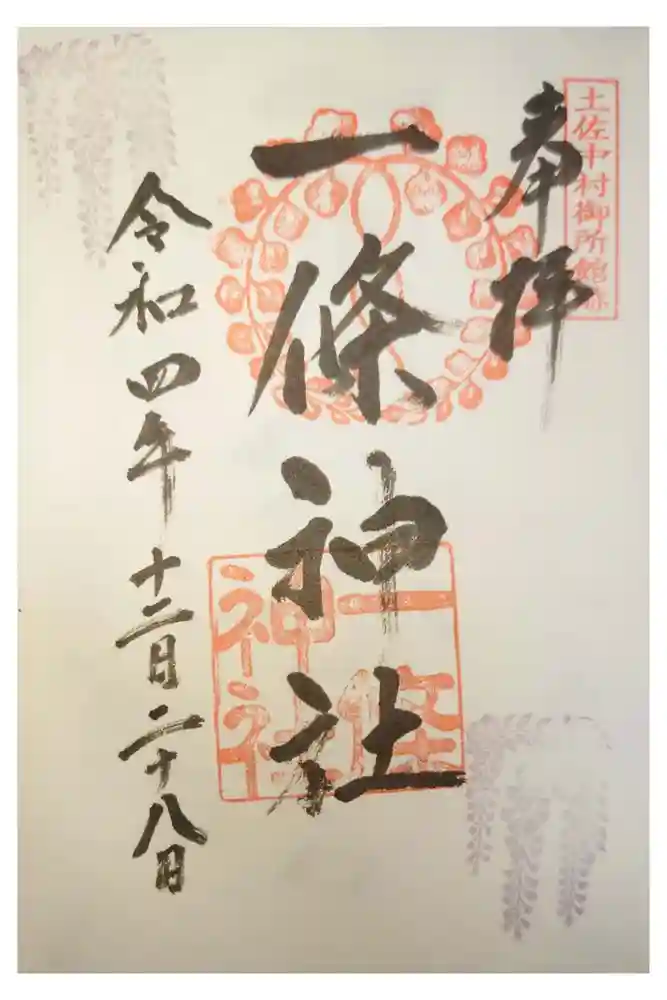 土佐中村御所館跡
奉拝
一條神社
一條
神社
令和四年十二月二十八日